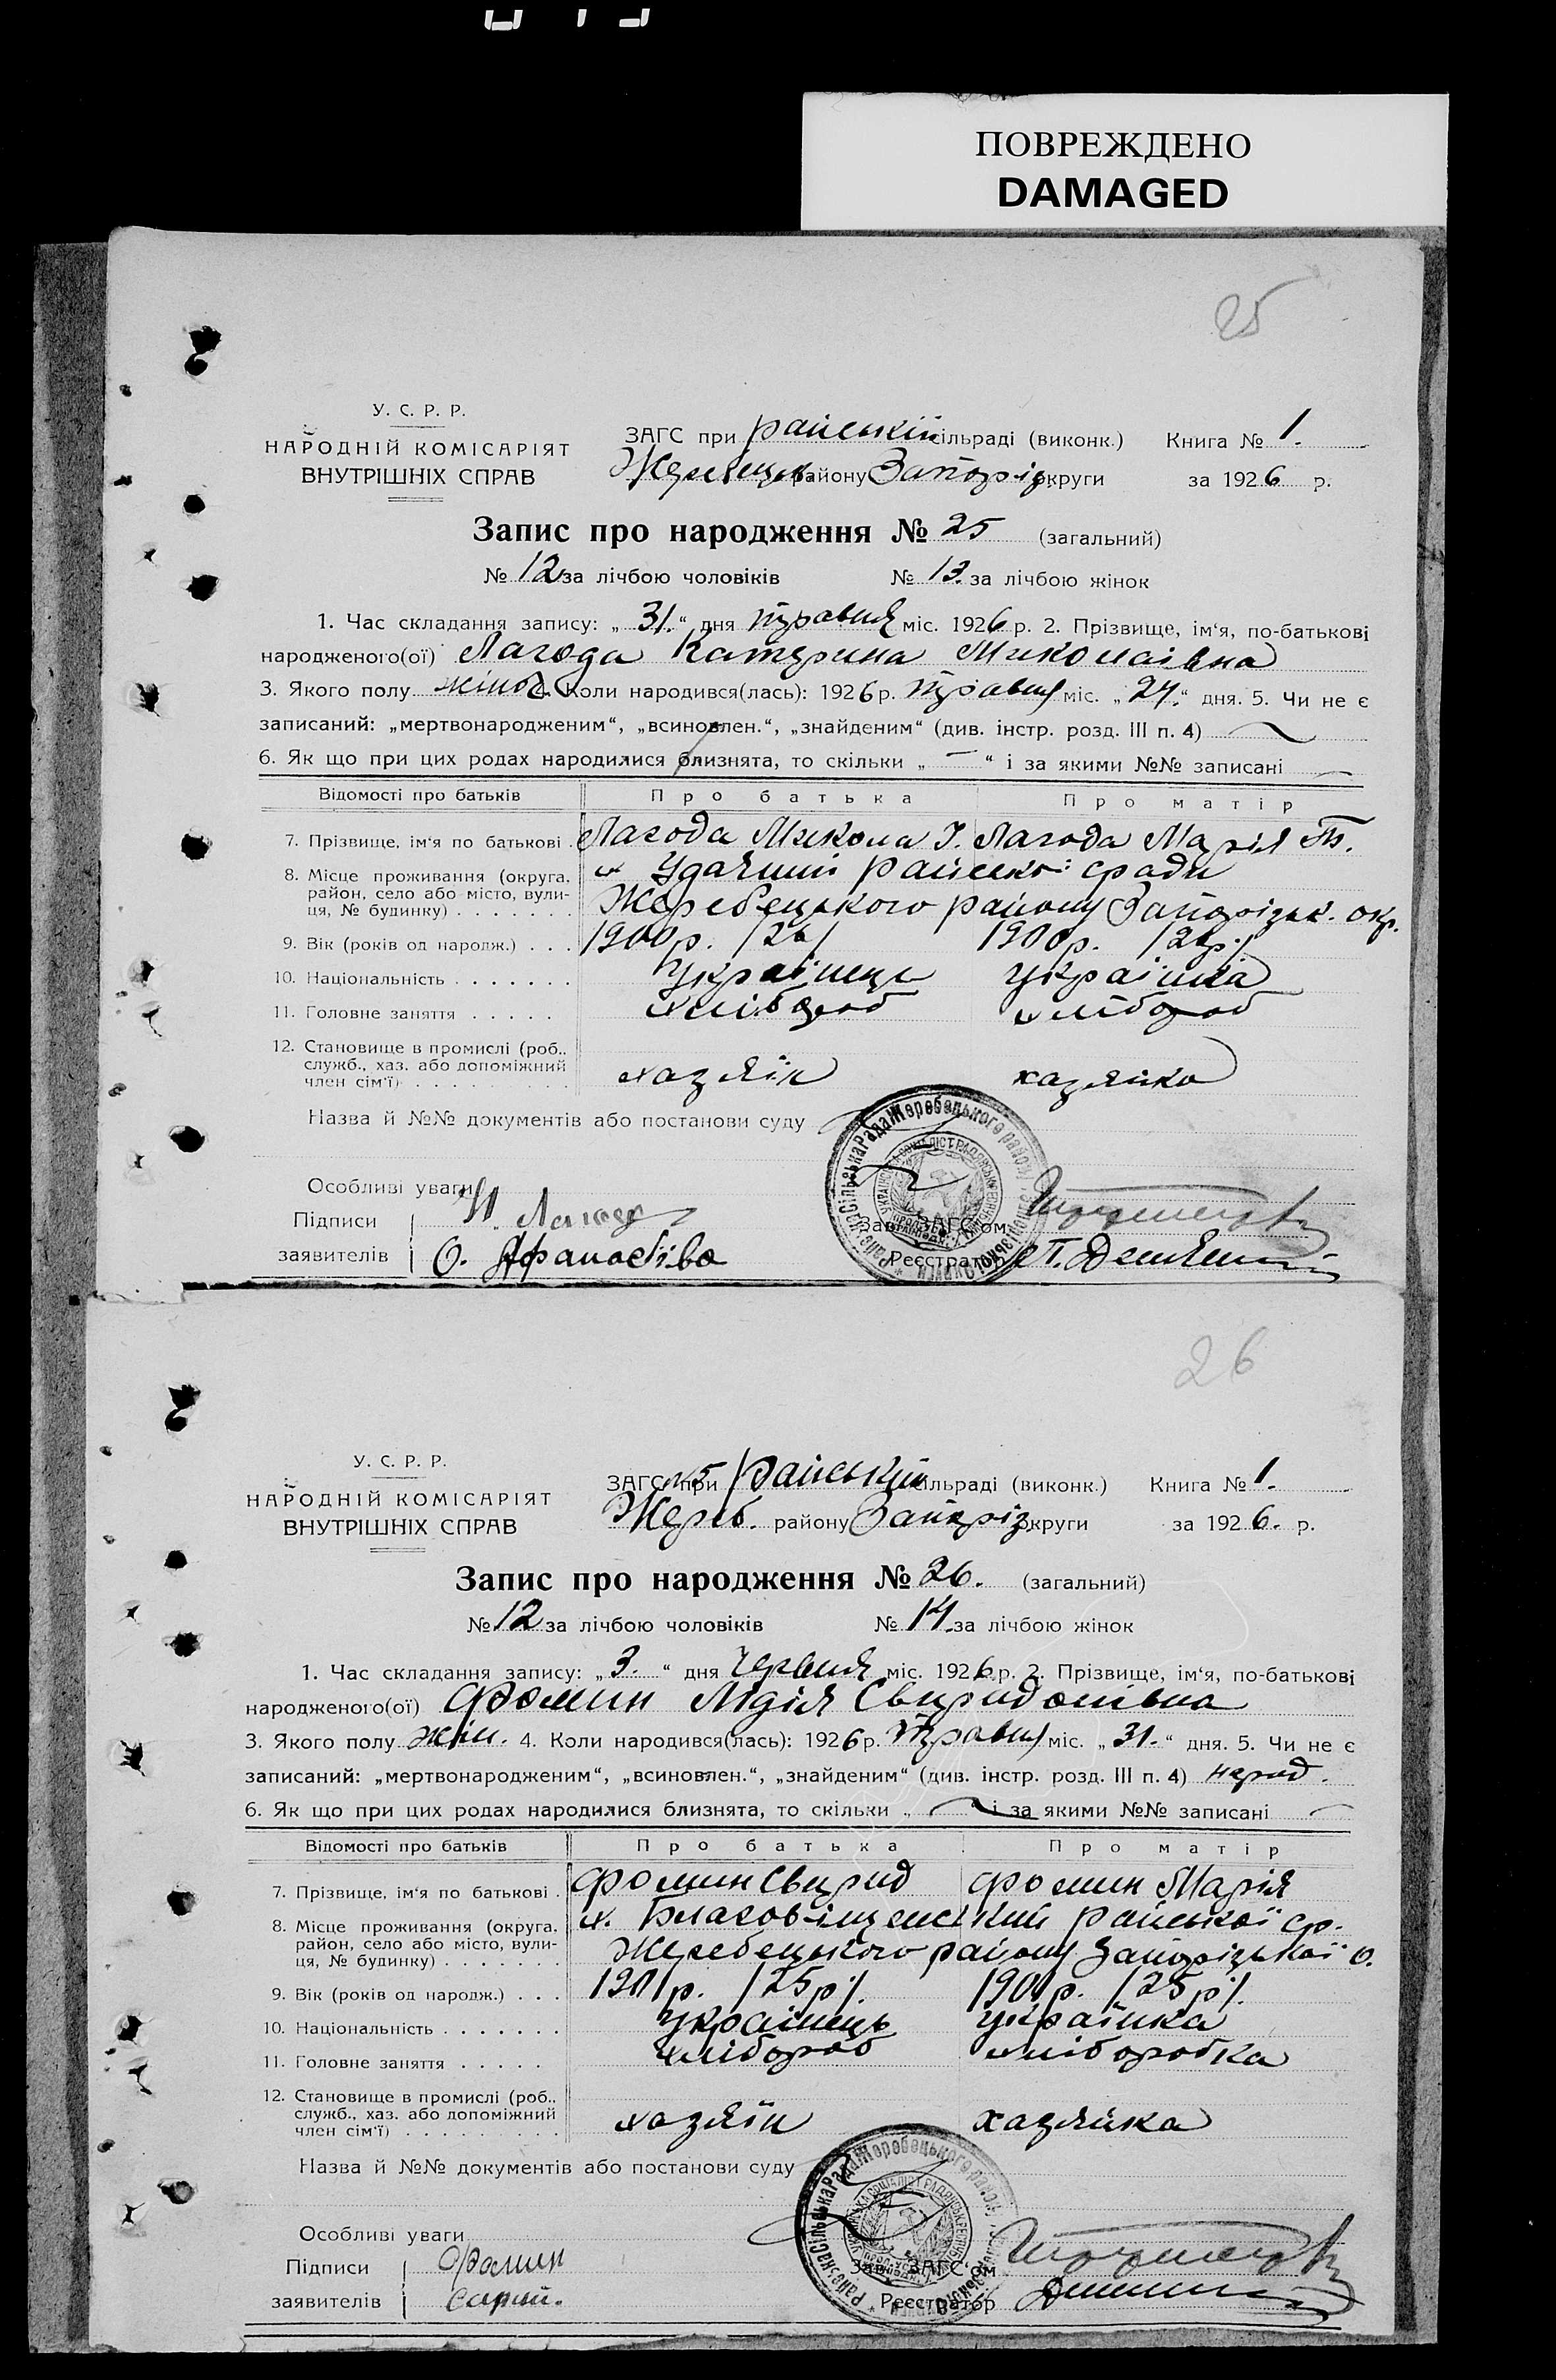 ПОВРЕЖДЕНО
DAMAGED
25
У. С. Р. Р.
НАРОДНІЙ КОМІСАРІЯТ
ВНУТРІШНІХ СПРАВ
ЗАГС при райській сільраді (виконк.) Книга № 1.
району Запоріз. округи за 1926 р.
Запис про народження № 25 (загальний)
№ 12 за лічбою чоловіків № 13. за лічбою жінок
1. Час складання запису: „ 31. “ дня травня міс. 1926 р. 2. Прізвище, ім‘я, по-батькові
народженого(ої) Лагода Катерина Миколаівна
3. Якого полу жіноч. 4. Коли народився(лась): 1926 р. травня міс. „ 24. “ дня. 5. Чи не є
записаний: „мертвонародженим“, „всиновлен.“, „знайденим“ (див. інстр. розд. III п. 4)
6. Як що при цих родах народилися близнята, то скільки „ — “ і за якими №№ записані —
Відомості про батьків Про батька Про матір
7. Прізвище, ім‘я по батькові . Лагода Микола І. Лагода Марія Т.
8. Місце проживання (округа, район, село або місто, вулиця, № будинку) х Удачний райської сради
Жеребецького району Запорізьк. окр.
9. Вік (років од народж.) . . . 1900р. /26/ 1900р. /26р./
10. Національність . . . . . . . Українець українка
11. Головне заняття . . . . . хлібороб хлібороб
12. Становище в промислі (роб., служб., хаз. або допоміжний член сім‘ї) хазяїн хазяйка
Назва й №№ документів або постанови суду
Особливі уваги
Підписи Н. Лагода
заявителів О. Афанасьіва
Зав. ЗАГС‘ом
Реєстратор
Райська Сільська Рада Жеребецького району Запорізької Округи
26
У. С. Р. Р.
НАРОДНІЙ КОМІСАРІЯТ
ВНУТРІШНІХ СПРАВ
ЗАГС при Райській сільраді (виконк.) Книга № 1.
Жереб. району Запоріз. округи за 1926. р.
Запис про народження № 26. (загальний)
№ 12 за лічбою чоловіків № 14. за лічбою жінок
1. Час складання запису: „ 3. “ дня червня міс. 1926 р. 2. Прізвище, ім‘я, по-батькові
народженого(ої) Фомин Лідія Свиридонівна
3. Якого полу жін. 4. Коли народився(лась): 1926 р. травня міс. „ 31. “ дня. 5. Чи не є
записаний: „мертвонародженим“, „всиновлен.“, „знайденим“ (див. інстр. розд. III п. 4) народ.
6. Як що при цих родах народилися близнята, то скільки „ — “ і за якими №№ записані —
Відомості про батьків Про батька Про матір
7. Прізвище, ім‘я по батькові . Фомин Свирид Фомин Марія
8. Місце проживання (округа, район, село або місто, вулиця, № будинку) х. Благовіщенський райської ср.
Жеребецького району Запорізької о.
9. Вік (років од народж.) . . . 1901р. /25р./. 1901р. /25р/.
10. Національність . . . . . . . Українець Українка
11. Головне заняття . . . . . хлібороб хліборобка
12. Становище в промислі (роб., служб., хаз. або допоміжний член сім‘ї) хазяїн хазяйка
Назва й №№ документів або постанови суду
Особливі уваги
Підписи Фомин
заявителів
Зав. ЗАГС‘ом
Реєстратор
Райська Сільська Рада Жеребецького району Запорізької Округи